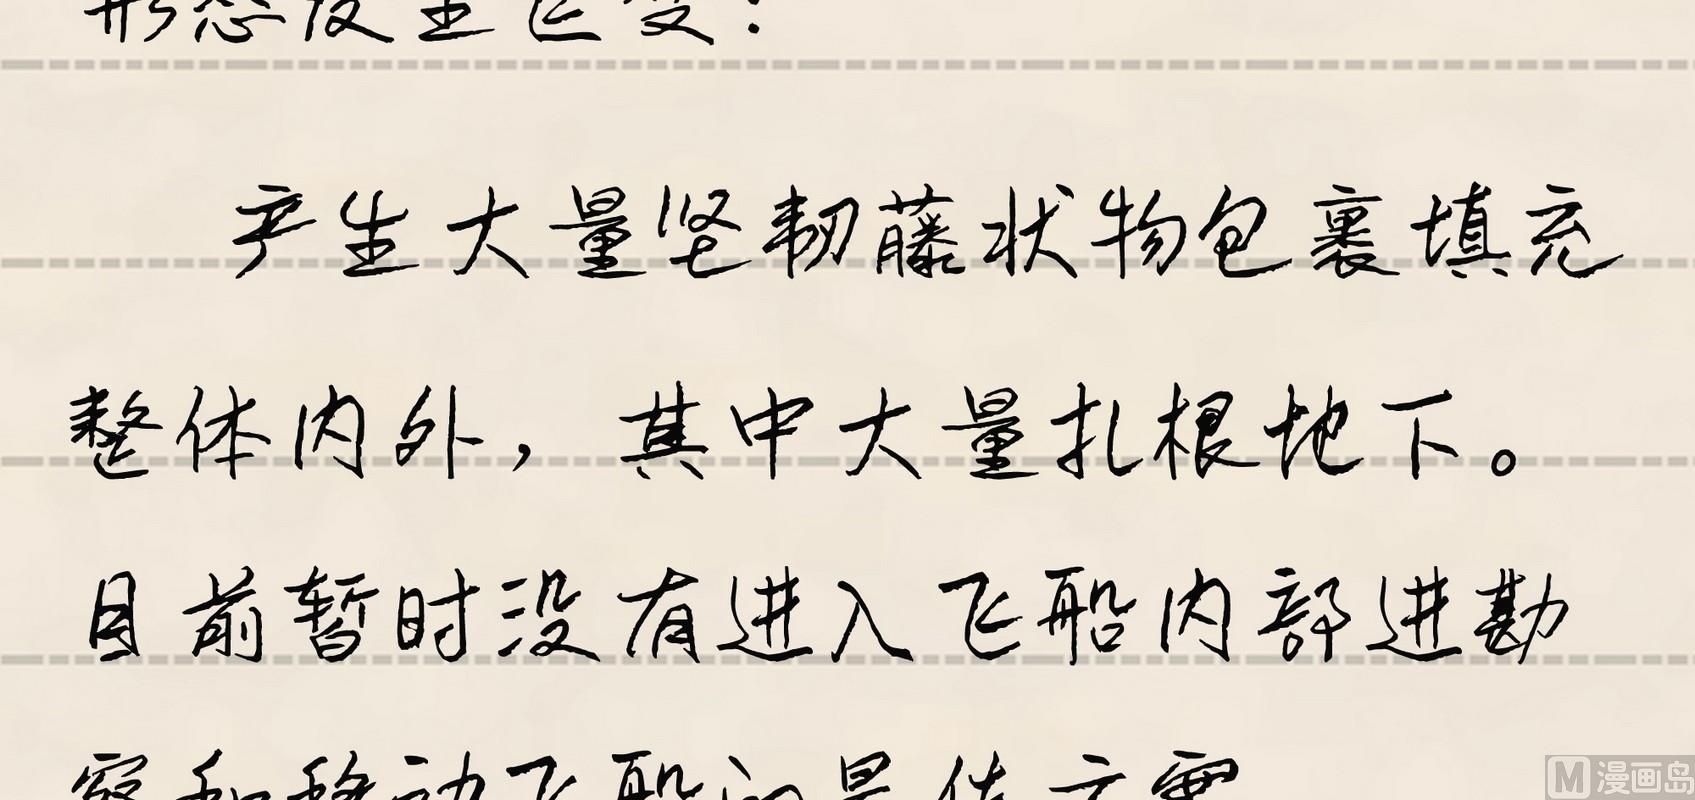 形态发生巨变：
产生大量坚韧藤状物包裹填充
整体内外，其中大量扎根地下。
目前暂时没有进入飞船内部进勘
察和移动飞船的具体方案
漫画岛